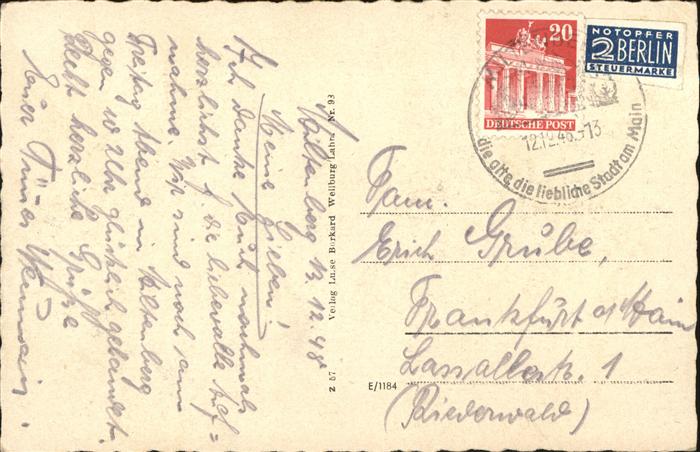 Miltenberg 13.12.48
Meine Lieben!
Ich danke Euch nochmals
herzlichst f. die liebevolle Auf=
nahme. Wir sind noch am
Freitag Abend in Miltenberg
gegen 10 Uhr glücklich gelandet.
Recht herzliche Grüße
Euer
Verlag Luise Burkard Weilburg Lahn Nr. 93
Z 57
E/1184
20
DEUTSCHE POST
NOTOPFER
2 BERLIN
STEUERMARKE
12.12.48.-13
die alte, die liebliche Stadt am Main
Fam.
Erich Grube,
Frankfurt a/Main
Lassallestr. 1
(Riederwald)